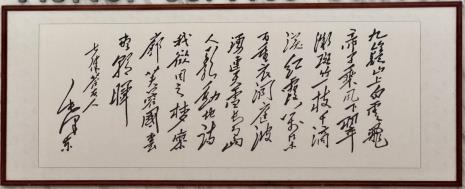 九嶷山上白雲飛
帝子乘風下翠
微斑竹一枝千滴
淚紅霞萬朵
百重衣洞庭波
涌連天雪長島
人歌動地詩
我欲因之夢寥
廓芙蓉國里
盡朝暉
七律答友人
毛澤東